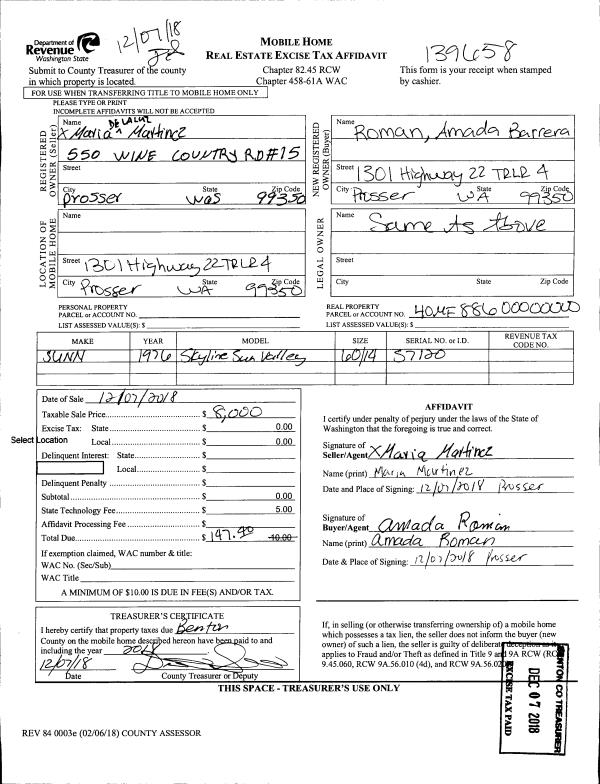 Department of
Revenue
Washington State
12/07/18
MOBILE HOME
REAL ESTATE EXCISE TAX AFFIDAVIT
139658
Submit to County Treasurer of the county
in which property is located.
Chapter 82.45 RCW
Chapter 458-61A WAC
This form is your receipt when stamped
by cashier.
FOR USE WHEN TRANSFERRING TITLE TO MOBILE HOME ONLY
PLEASE TYPE OR PRINT
INCOMPLETE AFFIDAVITS WILL NOT BE ACCEPTED
REGISTERED OWNER (Seller)
Name DE LA LUZ
X Maria ^ Martinez
550 WINE COUNTRY RD #15
Street
City State Zip Code
Prosser Was 99350
NEW REGISTERED OWNER (Buyer)
Name Roman, Amada Barrera
Street 1301 Highway 22 TRLR 4
City State Zip Code
Prosser WA 99350
LOCATION OF MOBILE HOME
Name
Street 1301 Highway 22 TRLR 4
City State Zip Code
Prosser WA 99350
LEGAL OWNER
Name Same As Above
Street
City State Zip Code
PERSONAL PROPERTY
PARCEL or ACCOUNT NO.
LIST ASSESSED VALUE(S): $
REAL PROPERTY
PARCEL or ACCOUNT NO.
LIST ASSESSED VALUE(S): $
MAKE YEAR MODEL SIZE SERIAL NO. or I.D. REVENUE TAX CODE NO.
SUNN 1976 Skyline Sun Valley 60/14 S7120
Date of Sale 12/07/2018
Taxable Sale Price $ 8,000
Excise Tax: State $ 0.00
Select Location
Local $ 0.00
Delinquent Interest: State $
Local $
Delinquent Penalty $
Subtotal $ 0.00
State Technology Fee $ 5.00
Affidavit Processing Fee $
Total Due $ 147.40 10.00
If exemption claimed, WAC number & title:
WAC No. (Sec/Sub)
WAC Title
A MINIMUM OF $10.00 IS DUE IN FEE(S) AND/OR TAX.
AFFIDAVIT
I certify under penalty of perjury under the laws of the State of
Washington that the foregoing is true and correct.
Signature of
Seller/Agent X Maria Martinez
Name (print) Maria Martinez
Date and Place of Signing: 12/07/2018 Prosser
Signature of
Buyer/Agent Amada Roman
Name (print) Amada Roman
Date & Place of Signing: 12/07/2018 Prosser
TREASURER'S CERTIFICATE
I hereby certify that property taxes due Benton
County on the mobile home described hereon have been paid to and
including the year 2018
12/07/18
Date County Treasurer or Deputy
If, in selling (or otherwise transferring ownership of) a mobile home
which possesses a tax lien, the seller does not inform the buyer (new
owner) of such a lien, the seller is guilty of deliberate deception as it
applies to Fraud and/or Theft as defined in Title 9 and 9A RCW (RC
9.45.060, RCW 9A.56.010 (4d), and RCW 9A.56.02
THIS SPACE - TREASURER'S USE ONLY
BENTON CO TREASURER
DEC 07 2018
EXCISE TAX PAID
REV 84 0003e (02/06/18) COUNTY ASSESSOR